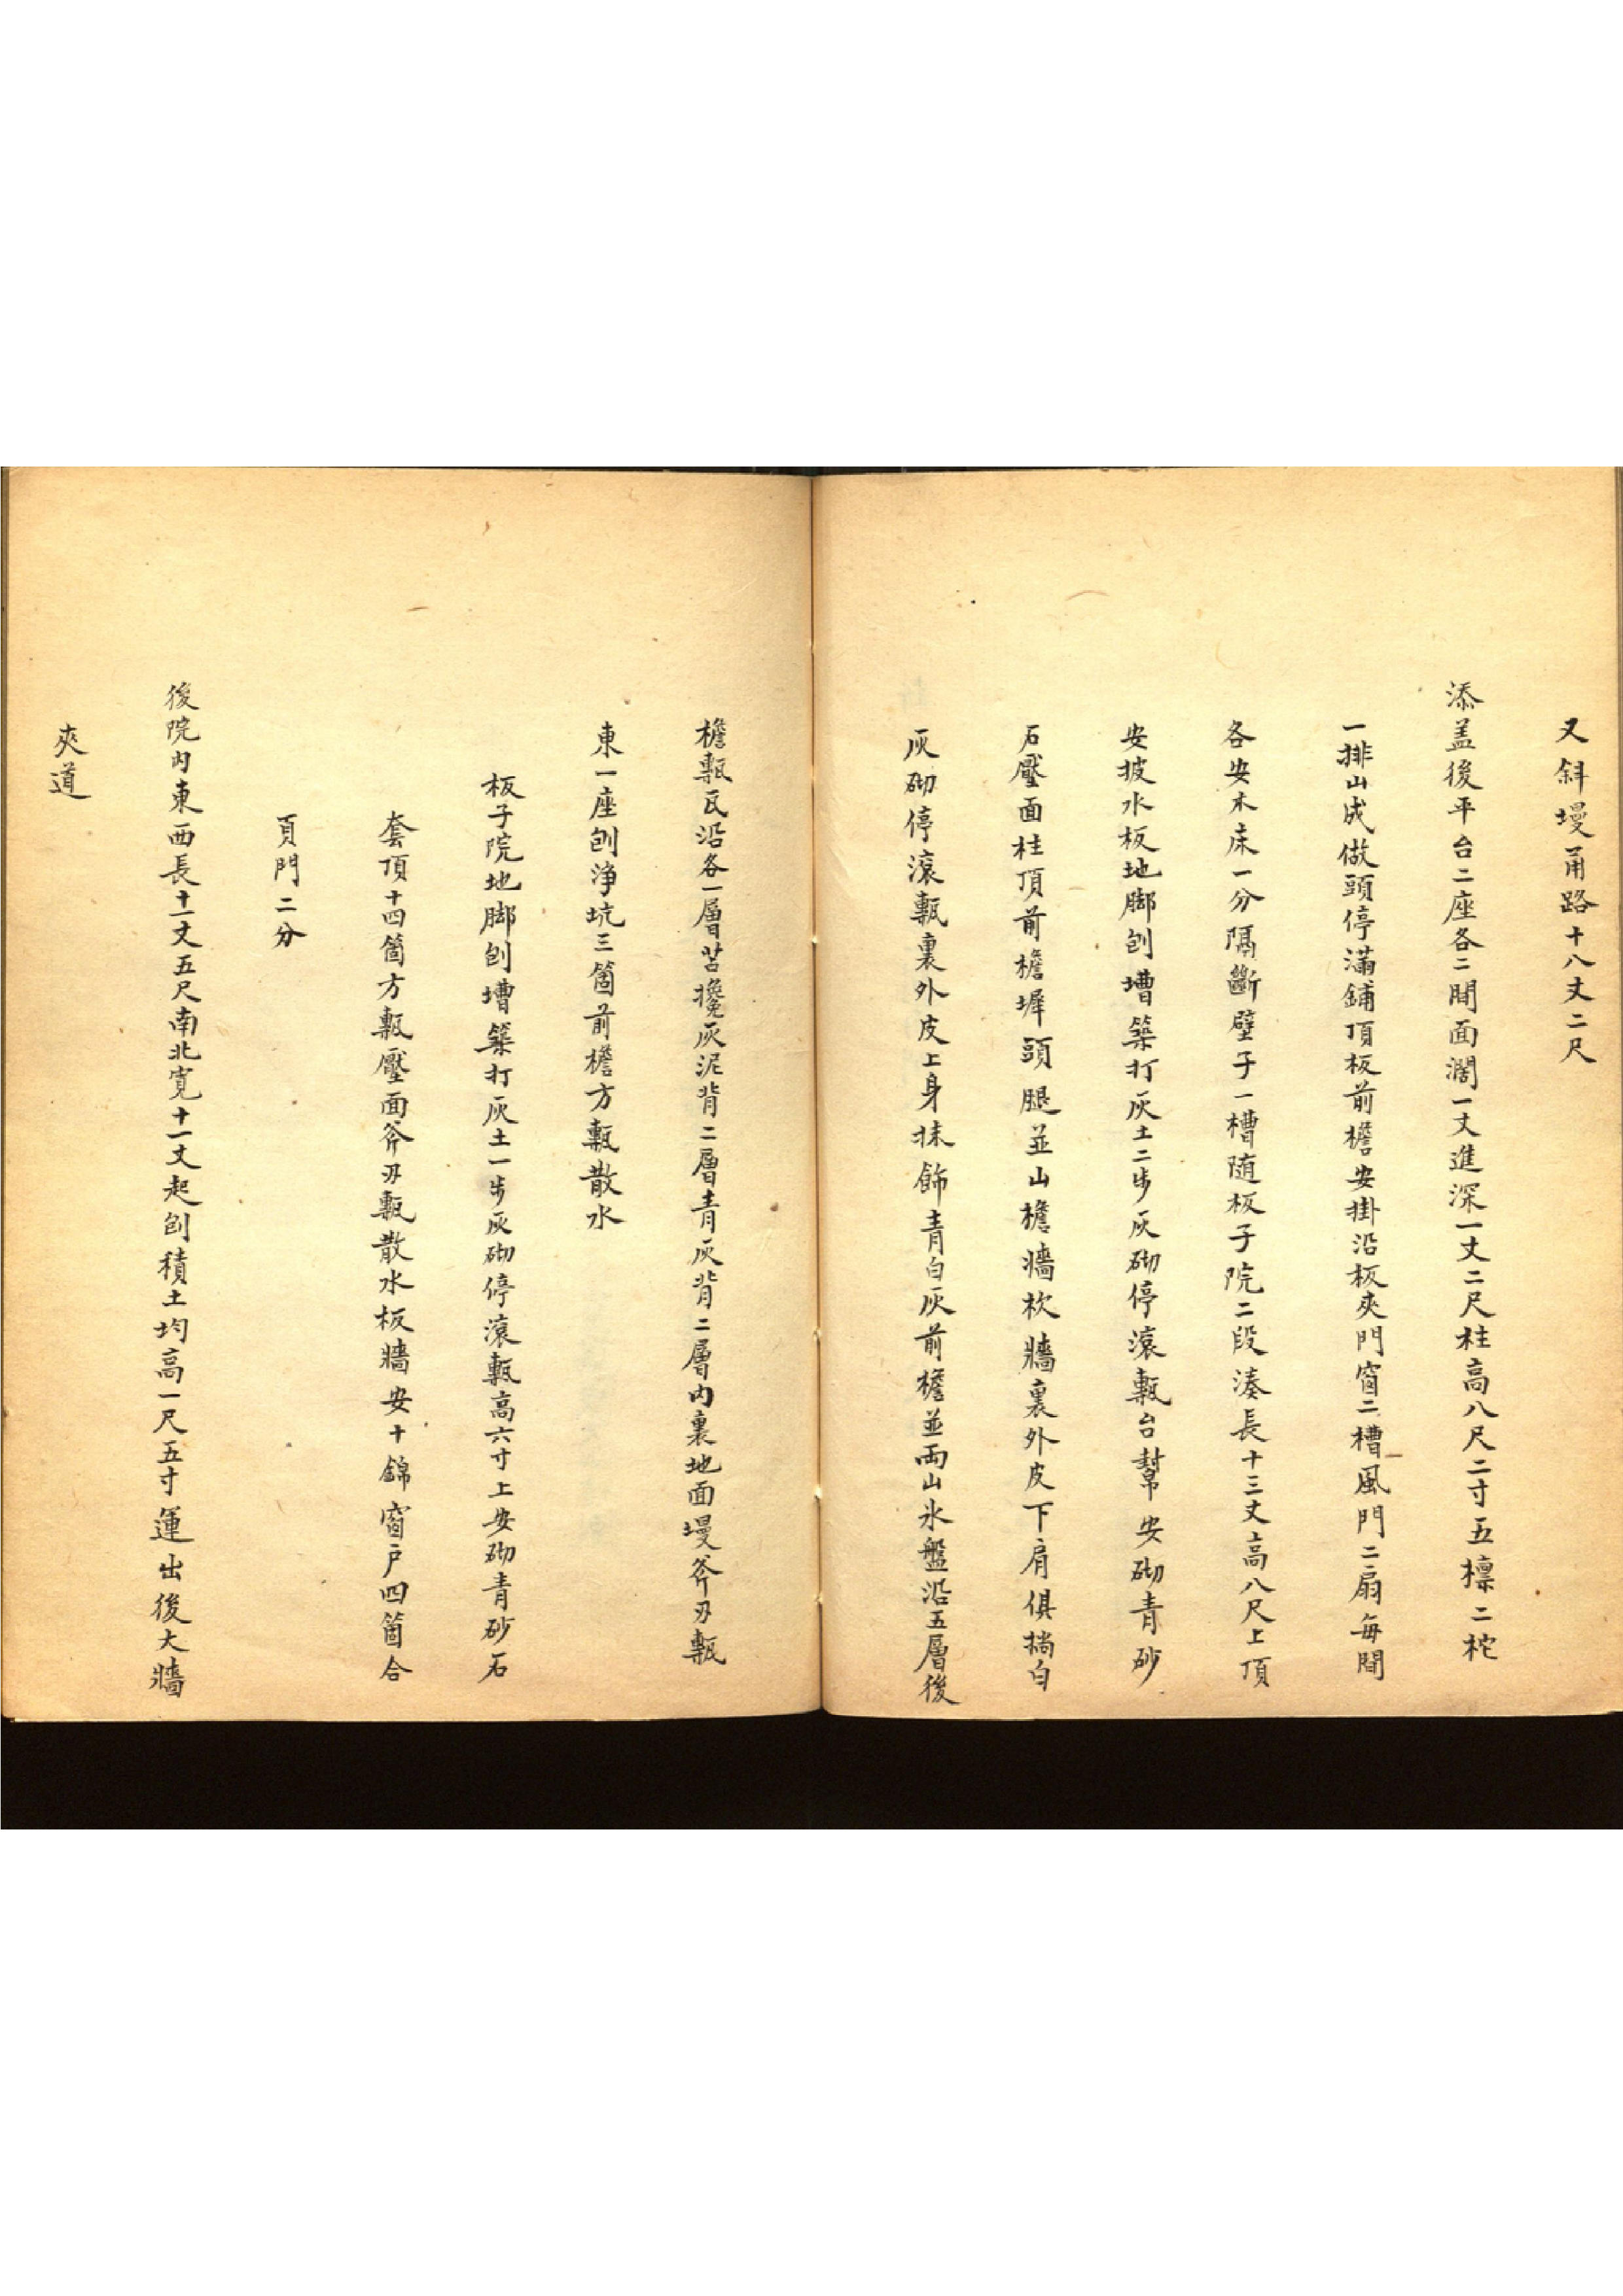 又斜墁甬路十八丈二尺
添盖後平台二座各二間面濶一丈進深一丈二尺柱高八尺二寸五檁二柁
一排山成做頭停滿鋪頂板前檐安掛沿板夾門窗二槽風門二扇每間
各安木床一分隔斷壁子一槽随板子院二段湊長十三丈高八尺上頂
安披水板地脚刨槽築打灰土二步灰砌停滾甎台幫安砌青砂
石壓面柱頂前檐墀頭腿並山檐墻栨墻裏外皮下肩俱搊白
灰砌停滾甎裏外皮上身抹飾青白灰前檐並両山氷盤沿五層後
檐甎瓦沿各一層苫攙灰泥背二層青灰背二層内裏地面墁斧刃甎
東一座刨浄坑三箇前檐方甎散水
板子院地脚刨槽築打灰土一步灰砌停滾甎高六寸上安砌青砂石
套頂十四箇方甎壓面斧刃甎散水板墻安十錦窗户四箇合
頁門二分
後院内東西長十一丈五尺南北寬十一丈起刨積土均高一尺五寸運出後大墻
夾道